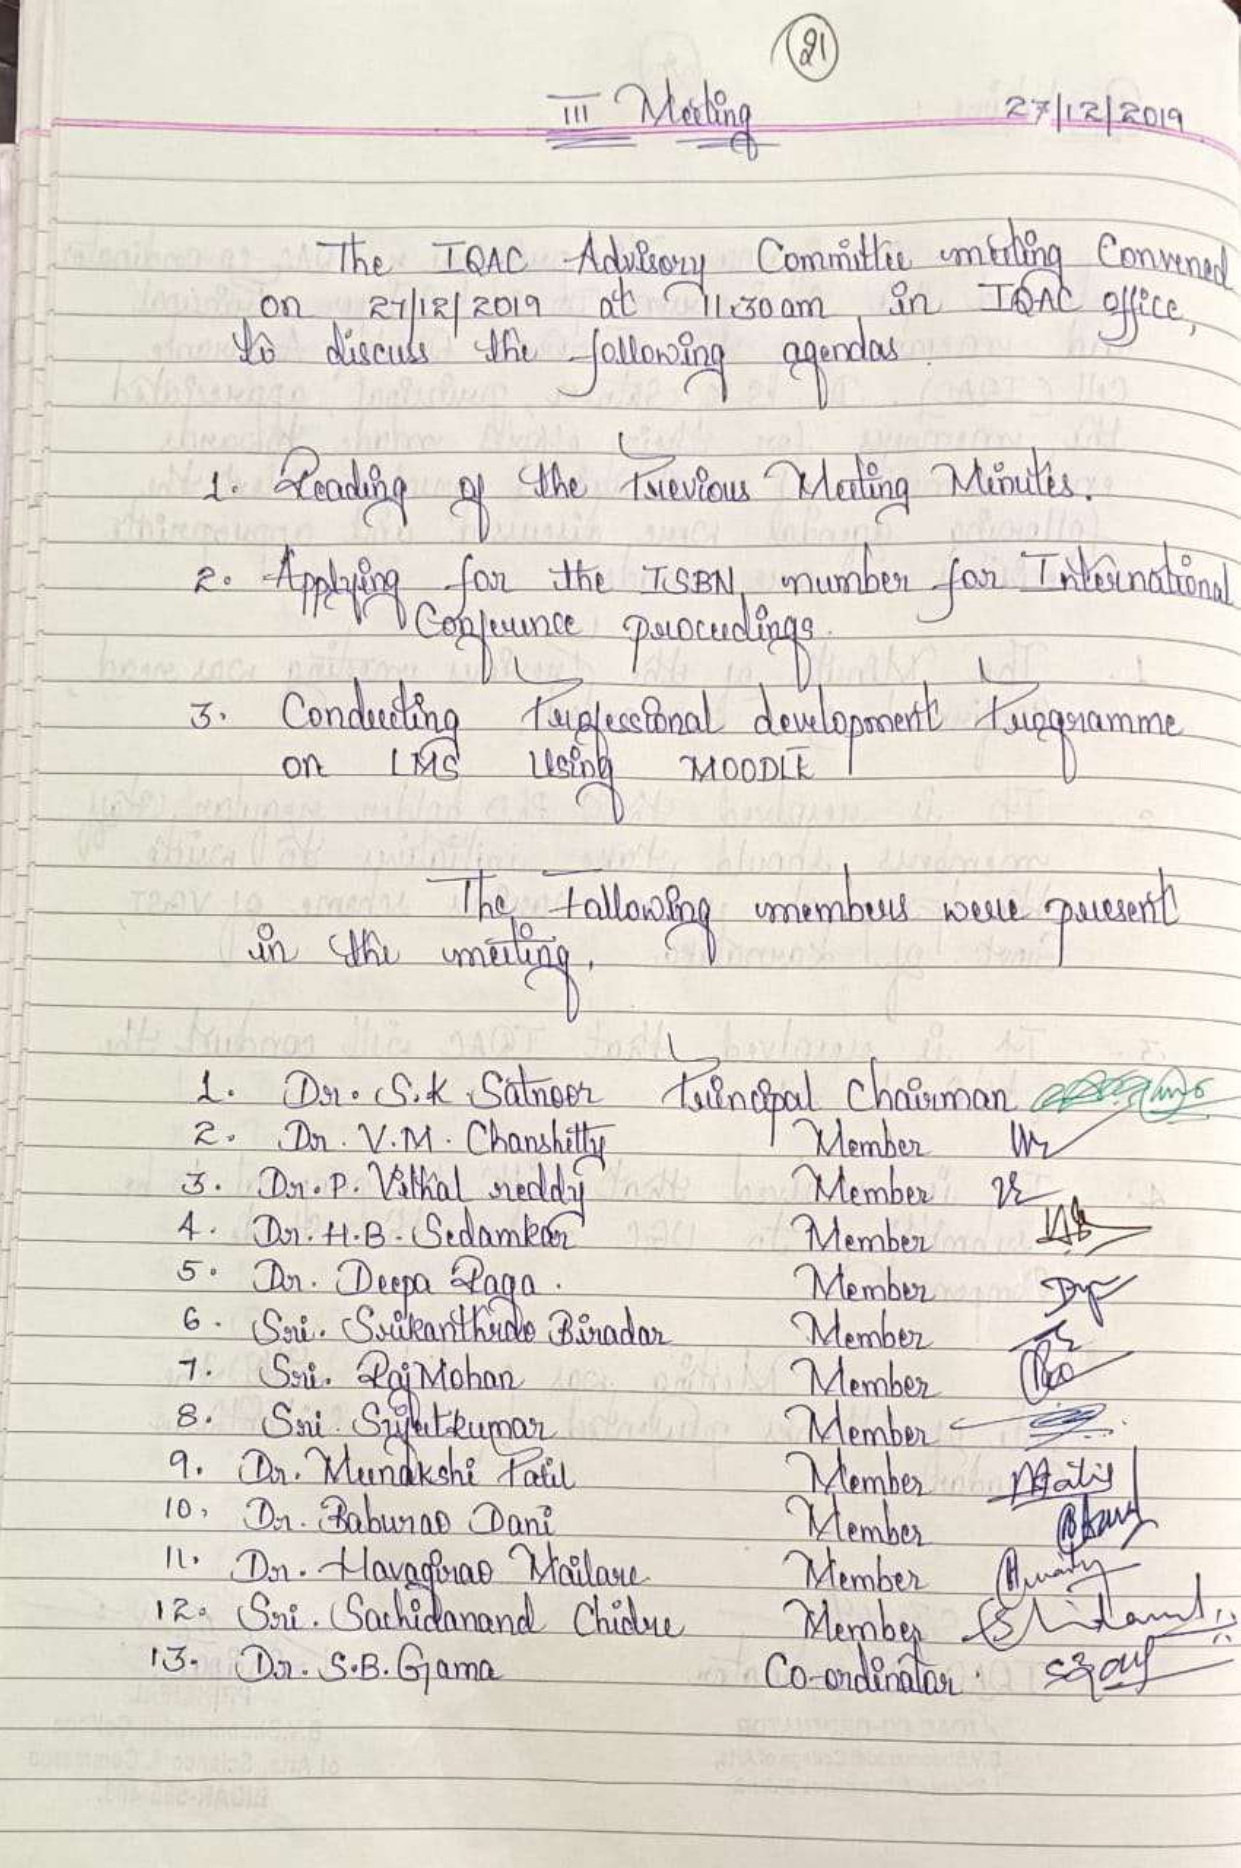 21
III Meeting 27/12/2019
The IQAC Advisory Committee meeting Convened
on 27/12/2019 at 11:30am in IQAC office,
to discuss the following agendas
1. Reading of the Previous Meeting Minutes.
2. Applying for the ISBN number for International
Conference proceedings.
3. Conducting Professional development Programme
on LMS Using MOODLE
The Following members were present
in the meeting.
1. Dr. S.K Satnoor Principal Chairman
2. Dr. V.M. Chanshetty Member
3. Dr. P. Vithal reddy Member
4. Dr. H.B. Sedamkar Member
5. Dr. Deepa Raga. Member
6. Sri. Srikanthrao Biradar Member
7. Sri. Raj Mohan Member
8. Sri. Member
9. Dr. Meenakshi Patil Member
10. Dr. Baburao Dani Member
11. Dr. Havagirao Mailare Member
12. Sri. Sachidanand Chidre Member
13. Dr. S.B. Gama Co-ordinator.